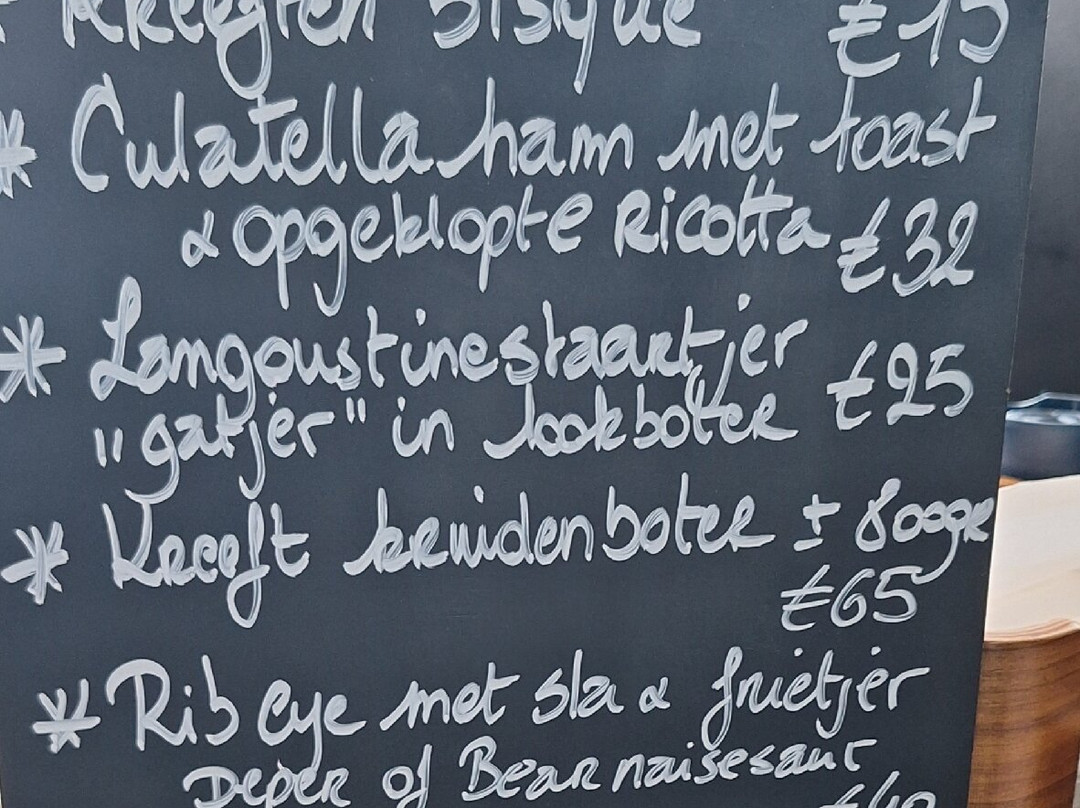 * Kreeften bisque €15
* Culatella ham met toast
& opgeklopte Ricotta €32
* Langoustinestaartjer
"gatjer" in lookboter €25
* Kreeft kruidenboter ± 800gr
€65
* Rib eye met sla & frietjer
Peper of Bearnaisesaus